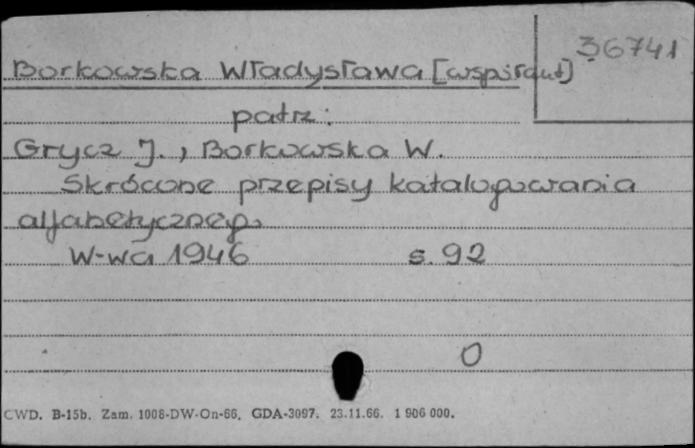 36741
Borkowska Władysława [współaut]
patrz:
Grycz J., Borkowska W.
Skrócone przepisy katalogowania
alfabetycznego
W-wa 1946 s. 92
0
CWD. B-15b. Zam. 1008-DW-On-66. GDA-3097. 23.11.66. 1 906 000.